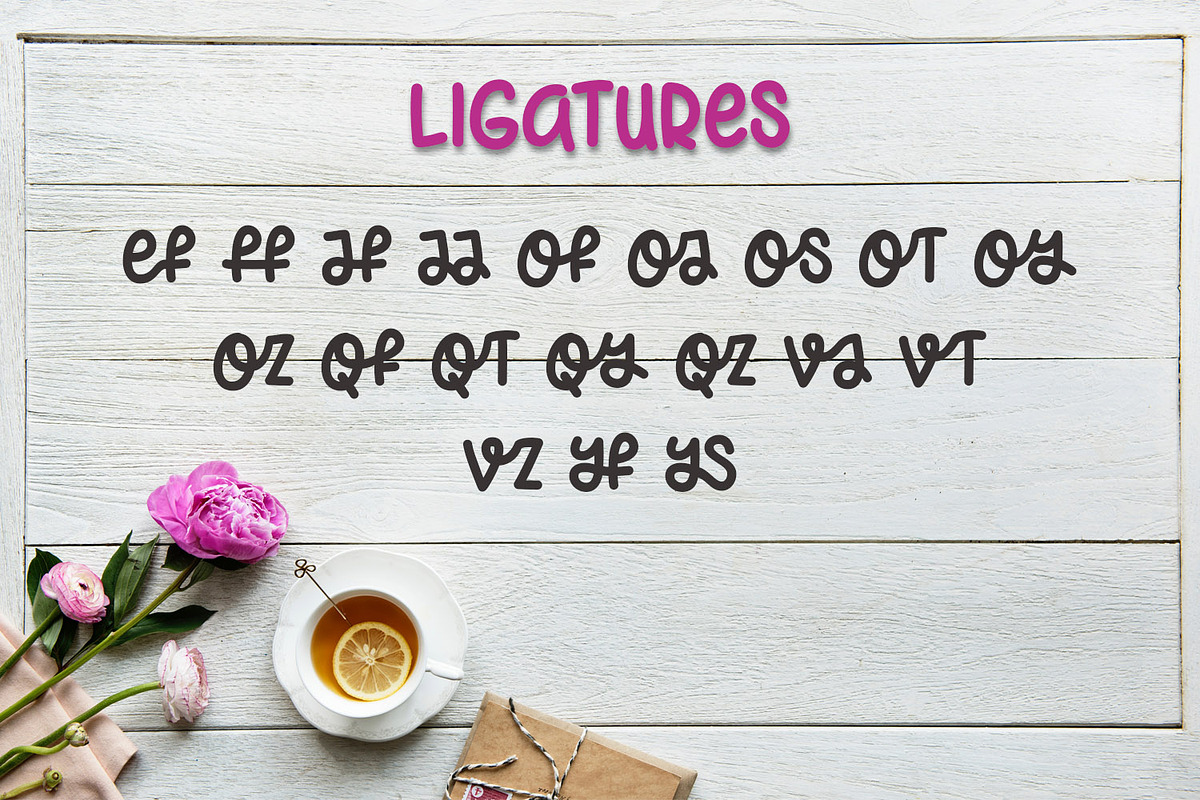 LIGATUReS
ef ff Jf JJ Of OJ OS OT Oy
OZ Qf QT Qy QZ VJ VT
VZ yf yS